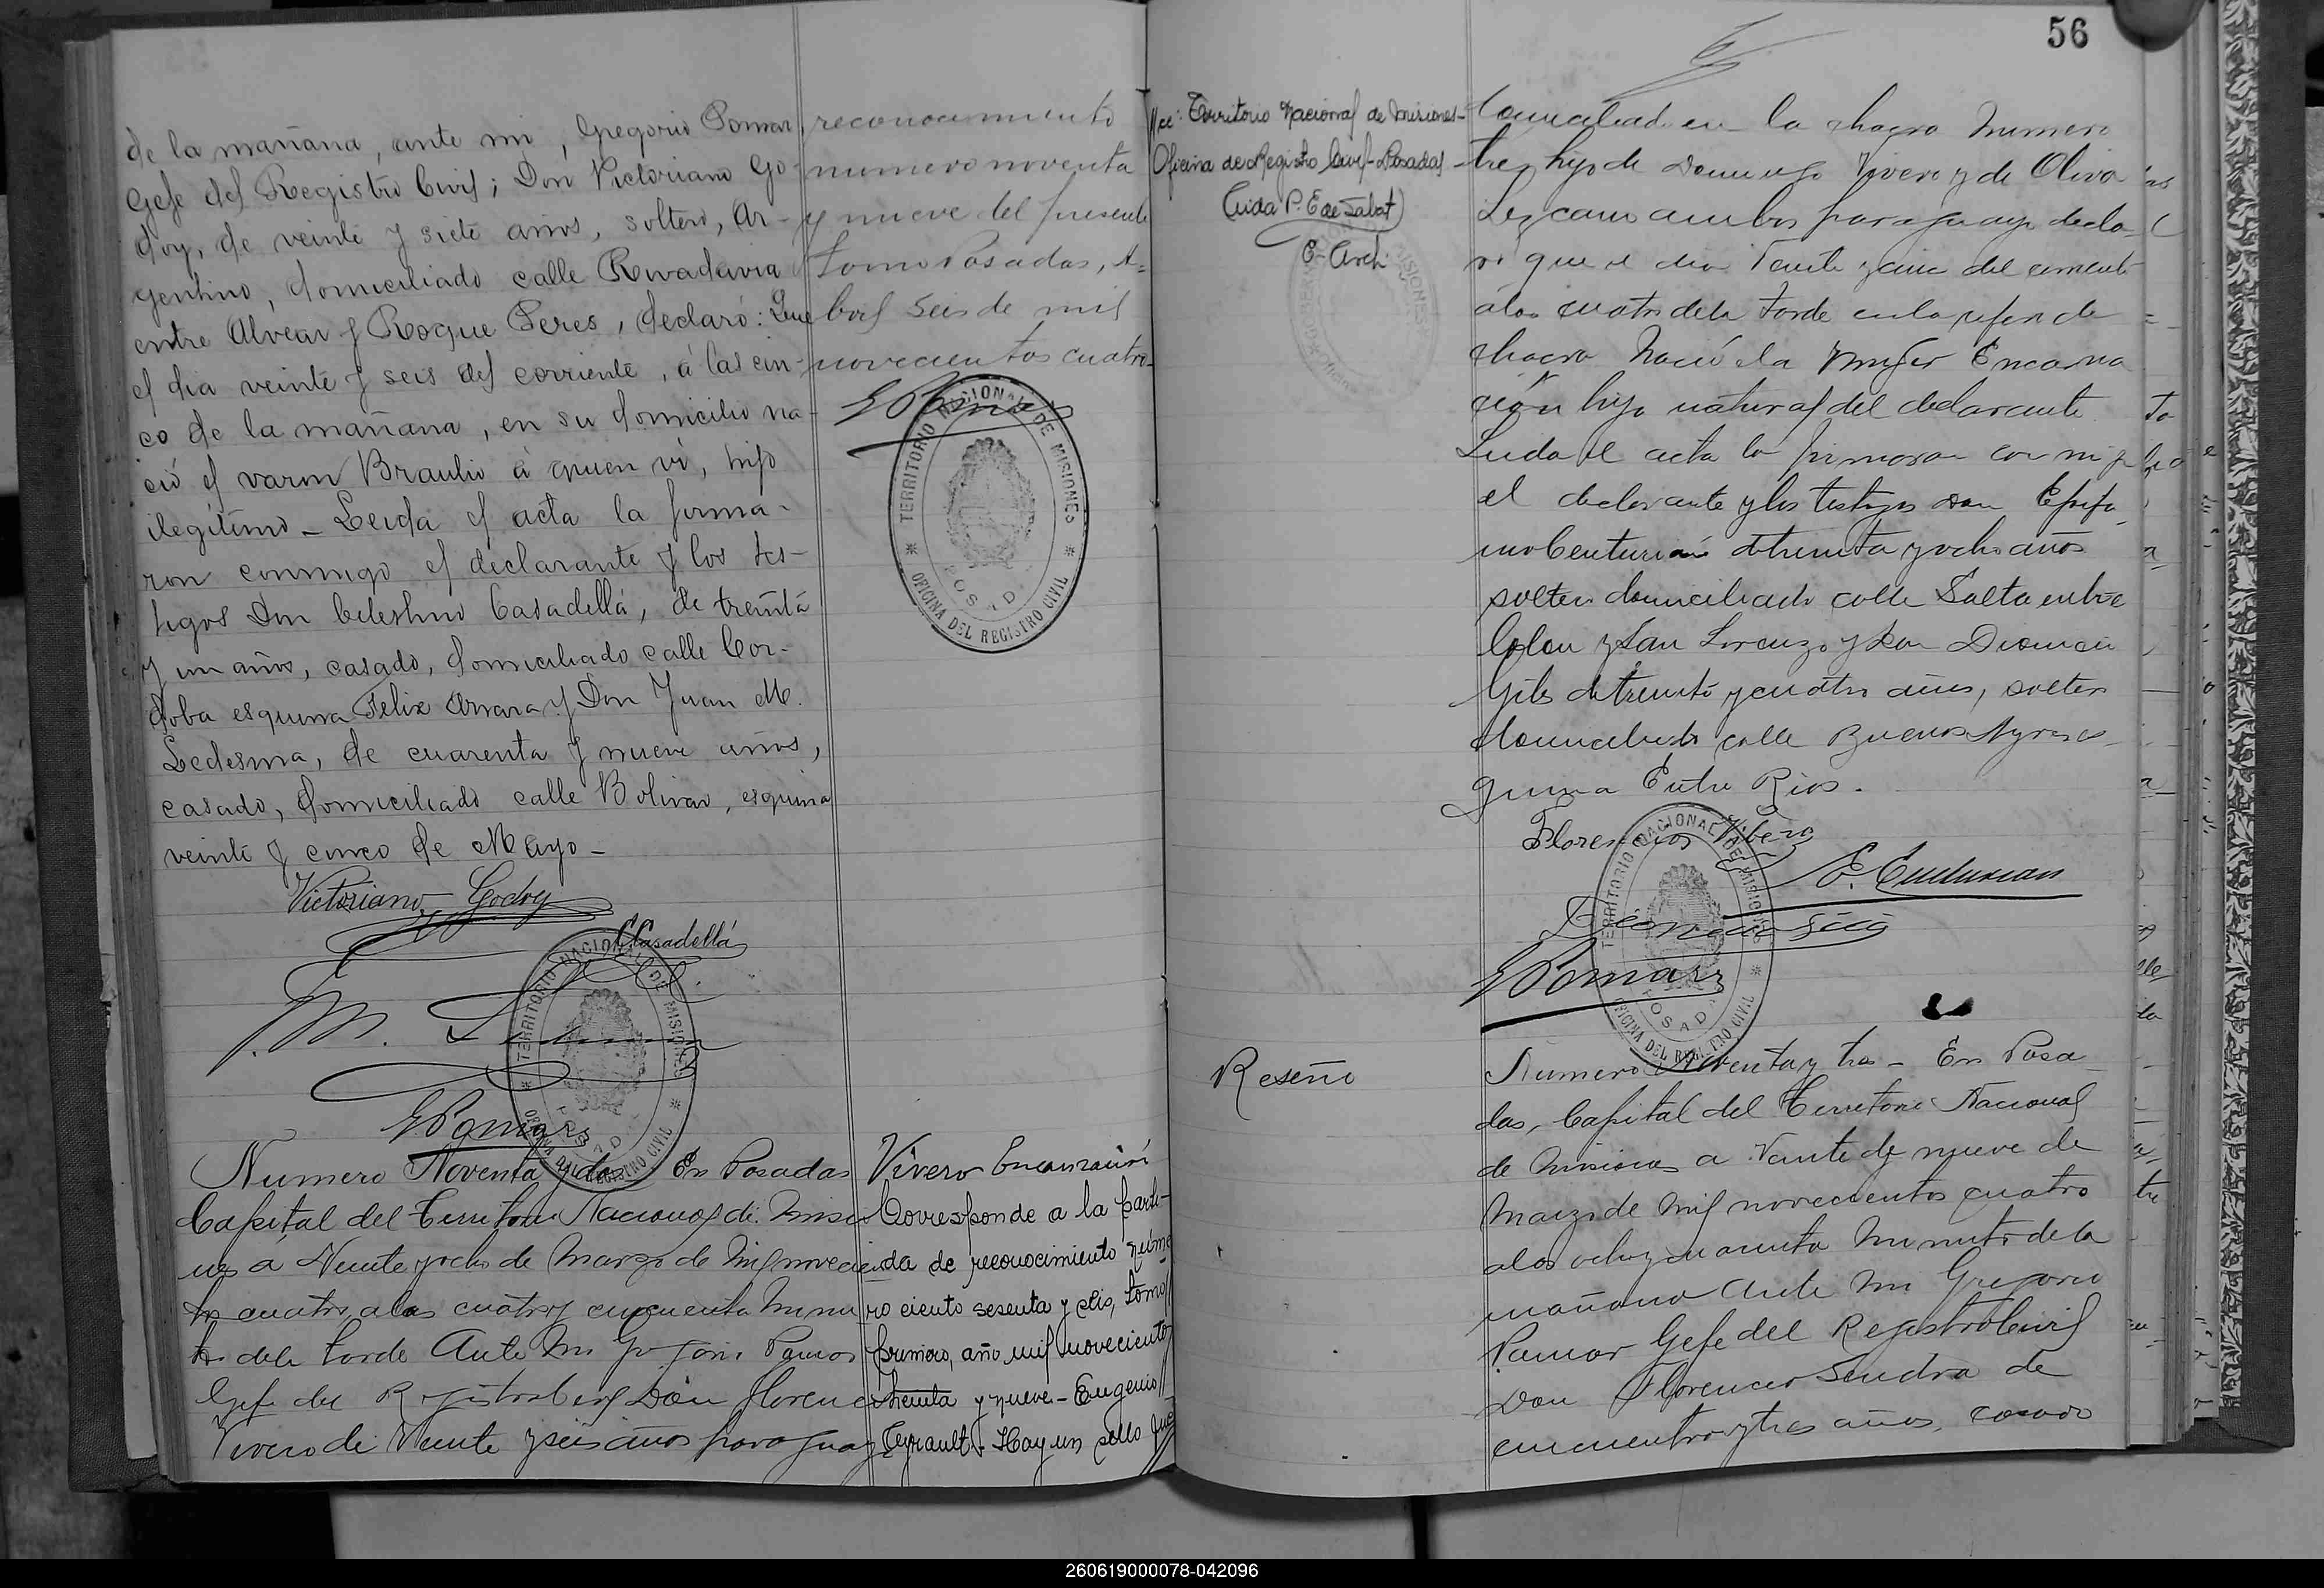 de la mañana, ante mi, Gregorio Pomar,
Gefe del Registro Civil; Don Victoriano Go-
doy, de veinte y siete años, soltero, Ar-
gentino, domiciliado calle Rivadavia
entre Alvear y Roque Peres, declaró: Que
el dia veinte y seis del corriente, á las cin-
co de la mañana, en su domicilio na-
ció el varon Braulio á quien vi, hijo
ilegitimo - Leida el acta la firma-
ron conmigo el declarante y los tes-
tigos Don Celestino Casadellá, de treinta
y un años, casado, domiciliado calle Cor-
doba esquina Felix Amara y Don Juan M.
Ledesma, de cuarenta y nueve años,
casado, domiciliado calle Bolivar, esquina
veinte y cinco de Mayo -
Victoriano Godoy
CCasadellá
J. M. L
GPomar
reconocimiento
numero noventa
y nueve del presente
tomo Posadas, A-
bril seis de mil
novecientos cuatro.
GPomar
TERRITORIO NACIONAL DE MISIONES
POSADAS
OFICINA DEL REGISTRO CIVIL
Numero Noventa y dos En Posadas
Capital del Territorio Nacional de Misio
nes a Veinte y ocho de Marzo de Mil novecien
tos cuatro, a las cuatro y cincuenta minu
tos de la tarde Ante Mi Gregorio Pomar
Gefe del Registro Civil Don Florencio
Vivero de Veinte y seis años paraguayo
Vivero Encarnación
Corresponde a la parti-
da de reconocimiento núme
ro ciento sesenta y seis, tomo
primero, año mil novecientos
treinta y nueve - Eugenio
Teyrault - Hay un sello que
56
dice: Territorio Nacional de Misiones-
Oficina del Registro Civil - Posadas -
(Aida P. E de Sabat)
E- Arch.
domiciliado en la chacra numero
tres hijo de Domingo Vivero y de Oliva
Lezcano ambos paraguayos decla-
ró que el dia Veinte y cinco del corriente
á las cuatro de la tarde en la referida
chacra nació la mujer Encarna
ción hija natural del declarante
Leida el acta la firmaron con migo
el declarante y los testigos Don Epifa
nio Centurión de treinta y ocho años
soltero domiciliado calle Salta entre
Colon y San Lorenzo y Don Dionicio
Gilis de treinta y cuatro años, soltero
domiciliado calle Buenos Ayres es
quina Entre Rios.
Florencio Vibero
E. Centurion
Dionicio
GPomar
TERRITORIO NACIONAL DE MISIONES
POSADAS
OFICINA DEL REGISTRO CIVIL
Reseño
Numero Noventa y tres - En Posa
das, Capital del Territorio Nacional
de Misiones a Veinte y nueve de
Marzo de Mil novecientos cuatro
a las ocho y cincuenta minutos de la
mañana Ante Mi Gregorio
Pomar Gefe del Registro Civil
Don Florencio Sendra de
cincuenta y tres años, casado
260619000078-042096